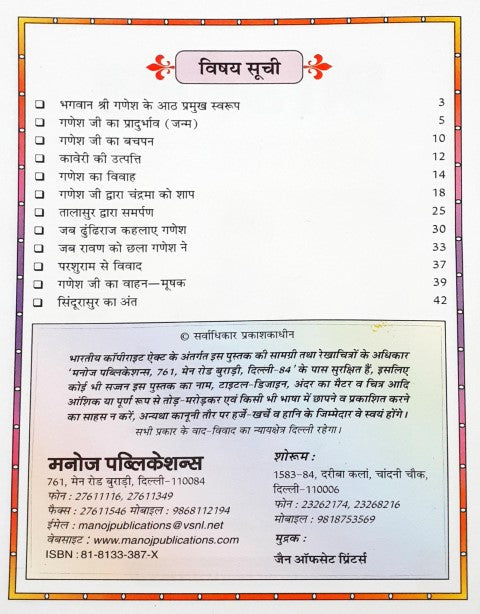 विषय सूची
❏ भगवान श्री गणेश के आठ प्रमुख स्वरूप 3
❏ गणेश जी का प्रादुर्भाव (जन्म) 5
❏ गणेश जी का बचपन 10
❏ कावेरी की उत्पत्ति 12
❏ गणेश का विवाह 14
❏ गणेश जी द्वारा चंद्रमा को शाप 18
❏ तालासुर द्वारा समर्पण 25
❏ जब ढुंढिराज कहलाए गणेश 30
❏ जब रावण को छला गणेश ने 33
❏ परशुराम से विवाद 37
❏ गणेश जी का वाहन—मूषक 39
❏ सिंदूरासुर का अंत 42
© सर्वाधिकार प्रकाशकाधीन
भारतीय कॉपीराइट ऐक्ट के अंतर्गत इस पुस्तक की सामग्री तथा रेखाचित्रों के अधिकार
'मनोज पब्लिकेशन्स, 761, मेन रोड बुराड़ी, दिल्ली-84' के पास सुरक्षित हैं, इसलिए
कोई भी सज्जन इस पुस्तक का नाम, टाइटल-डिजाइन, अंदर का मैटर व चित्र आदि
आंशिक या पूर्ण रूप से तोड़-मरोड़कर एवं किसी भी भाषा में छापने व प्रकाशित करने
का साहस न करें, अन्यथा कानूनी तौर पर हर्जे-खर्चे व हानि के जिम्मेदार वे स्वयं होंगे।
सभी प्रकार के वाद-विवाद का न्यायक्षेत्र दिल्ली रहेगा।
मनोज पब्लिकेशन्स
761, मेन रोड बुराड़ी, दिल्ली-110084
फोन : 27611116, 27611349
फैक्स : 27611546 मोबाइल : 9868112194
ईमेल : manojpublications@vsnl.net
वेबसाइट : www.manojpublications.com
ISBN : 81-8133-387-X
शोरूम :
1583-84, दरीबा कलां, चांदनी चौक,
दिल्ली-110006
फोन : 23262174, 23268216
मोबाइल : 9818753569
मुद्रक :
जैन ऑफसेट प्रिंटर्स